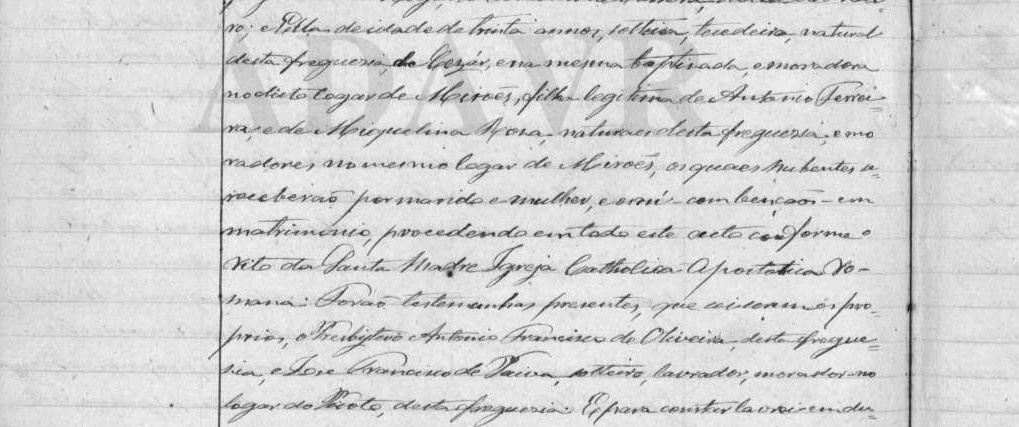 ro; e Ella de idade de trinta annos, solteira, tecedeira, natural
desta freguezia de Cezár, e na mesma baptizada, e moradora
no dicto logar de Mirões, filha legitima de Antonio Ferrei=
ra, e de Miquelina Rosa, naturaes desta freguezia, e mo
radores no mesmo logar de Mirões, os quaes nubentes se
receberaõ por marido e mulher, e os uni - com bençaõs - em
matrimonio, procedendo em todo este acto conforme o
rito da Santa Madre Igreja Catholica Apostolica Ro-
mana. Foraõ testemunhas presentes, que sei serem os pro=
prios, o Presbytero Antonio Francisco de Oliveira, desta fregue=
sia, e José Francisco de Paiva, solteiro, lavrador, morador no
logar do Picoto, desta freguezia. E para constar lavrei em du=
ADAVR